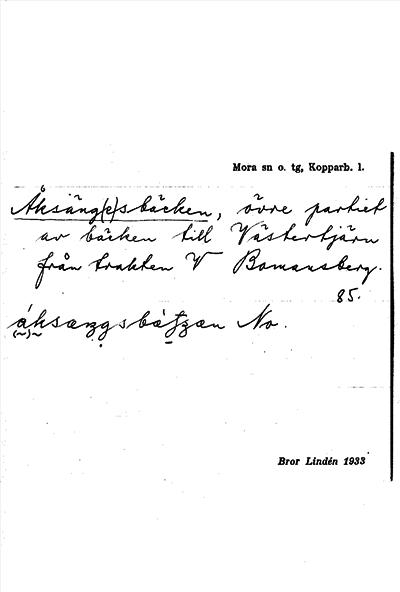 Mora sn o. tg, Kopparb. l.
Åksäng(e)sbäcken, övre partiet
av bäcken till Västertjärn
från trakten V Bomansberg.
85.
No.
Bror Lindén 1933